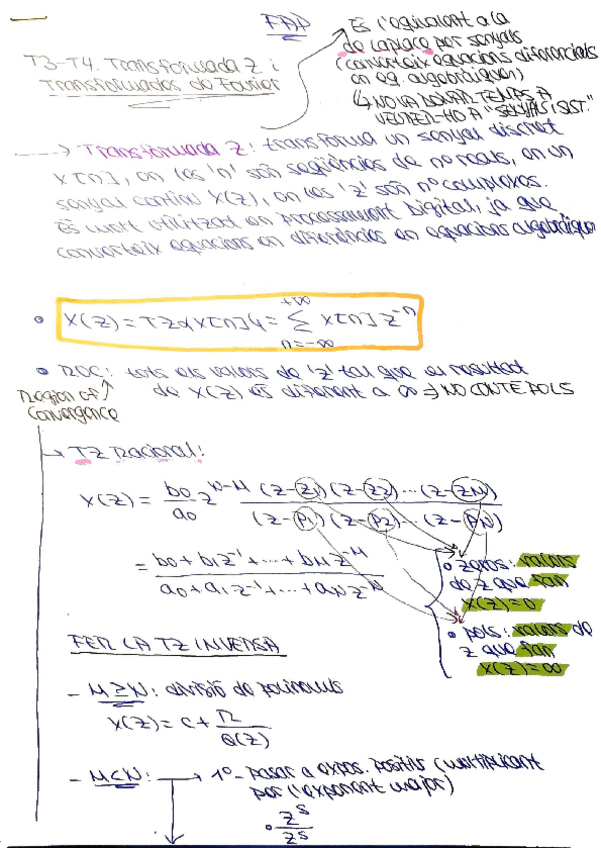 FAD
T3-T4. Transformada Z i
Transformades de Fourier
És l'equivalent a la
de Laplace per senyals
(converteix equacions diferencials
en eq. algebràiques)
↳ NO VA DONAR TEMPS A
VEURE-HO A "SENYALS I SIST."
→ Transformada Z: transforma un senyal discret
x[n], on les 'n' són seqüències de nº reals, en un
senyal continu X(z), on les 'z' són nº complexos.
És molt utilitzat en processament Digital, ja que
converteix equacions en diferències en equacions algebràiques
• X(z) = TZ{x[n]} = \sum_{n=-∞}^{+∞} x[n] z^{-n}
• ROC: tots els valors de 'z' tal que el resultat
de X(z) és diferent a ∞ ⇒ NO CONTÉ POLS
Region of
Convergence
→ TZ racional:
X(z) = \frac{b0}{a0} z^{N-M} \frac{(z-z1)(z-z2)...(z-zM)}{(z-p1)(z-p2)...(z-pN)}
= \frac{b0+b1z^{-1}+...+bMz^{-M}}{a0+a1z^{-1}+...+aNz^{-N}}
• zeros: valors
de z que fan
X(z)=0
• pols: valors de
z que fan
X(z)=∞
FER LA TZ INVERSA
- M≥N: divisió de polinomis
X(z) = c + \frac{R}{Q(z)}
- M<N: → 1º- Passar a expos. positiu (multiplicant
per l'exponent major)
• \frac{z^s}{z^s}